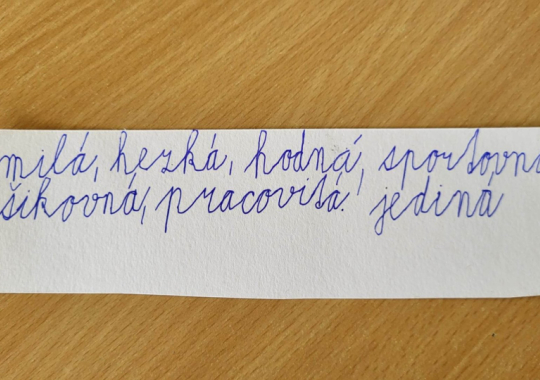 milá, hezká, hodná, sportovní
šikovná, pracovitá! jediná